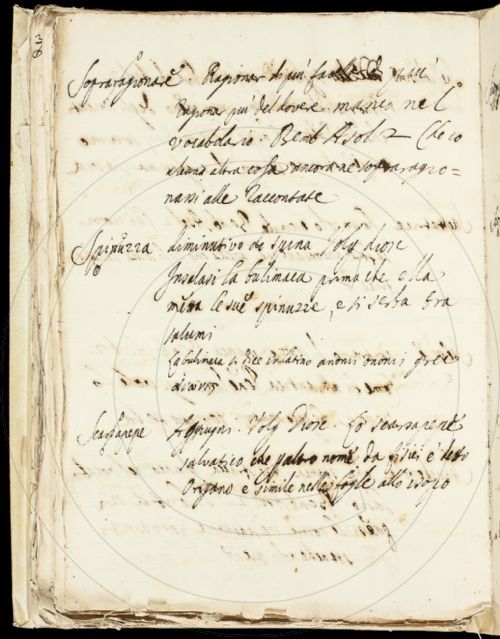 Sopraragionare. Ragionar di piu
Ragionar piu del dovere manca nel
Vocabolario. Bemb Asol 2
alcuna altra cosa ancora ne sopraragio=
nassi alle Raccontate
Spinuzza diminutivo de spina Volg diosc
Insalasi la bulimaca prima che ella
metta le sue spinuzze, e si serba fra
salumi
La bulimaca si dice in latino anonis ononis grec
Scarsapepe Aggiugni. Volg Diosc. Lo scarsapepe
salvatico che p altro nome da è detto
Origano è simile nelle foglie allo isopo